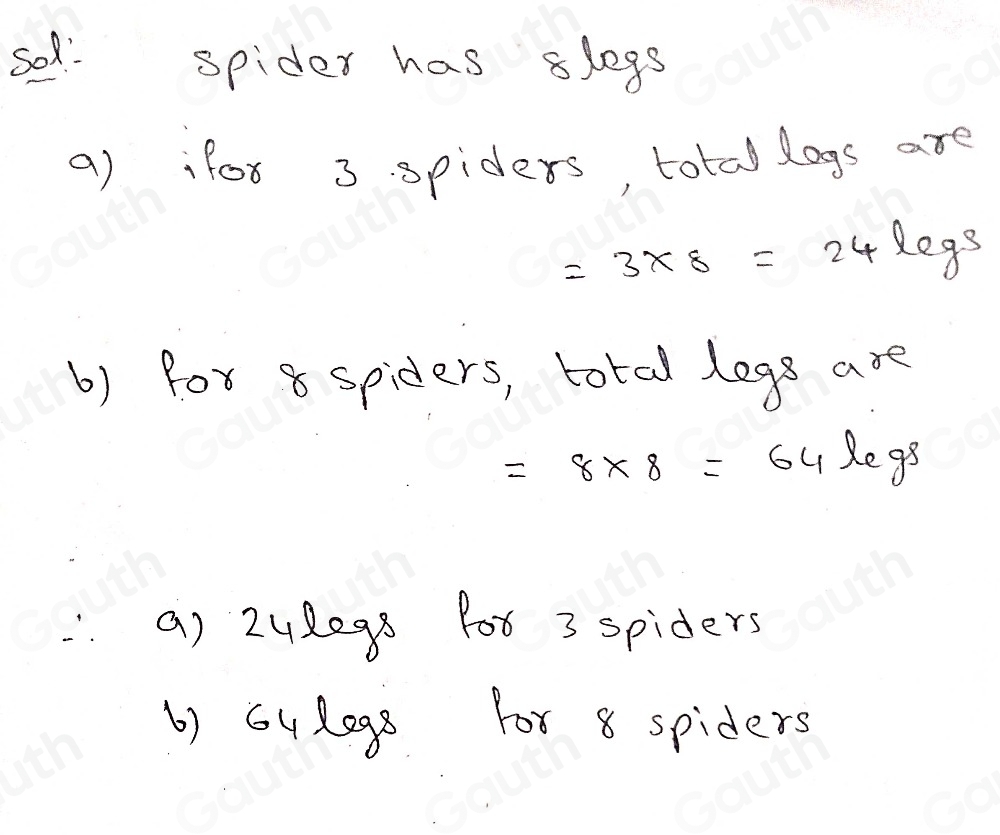 Sol:-   spider has 8 legs
a) ifor 3 spiders, total legs are
= 3×8 = 24 legs
b) for 8 spiders, total legs are
= 8×8 = 64 legs
∴ a) 24 legs for 3 spiders
b) 64 legs for 8 spiders